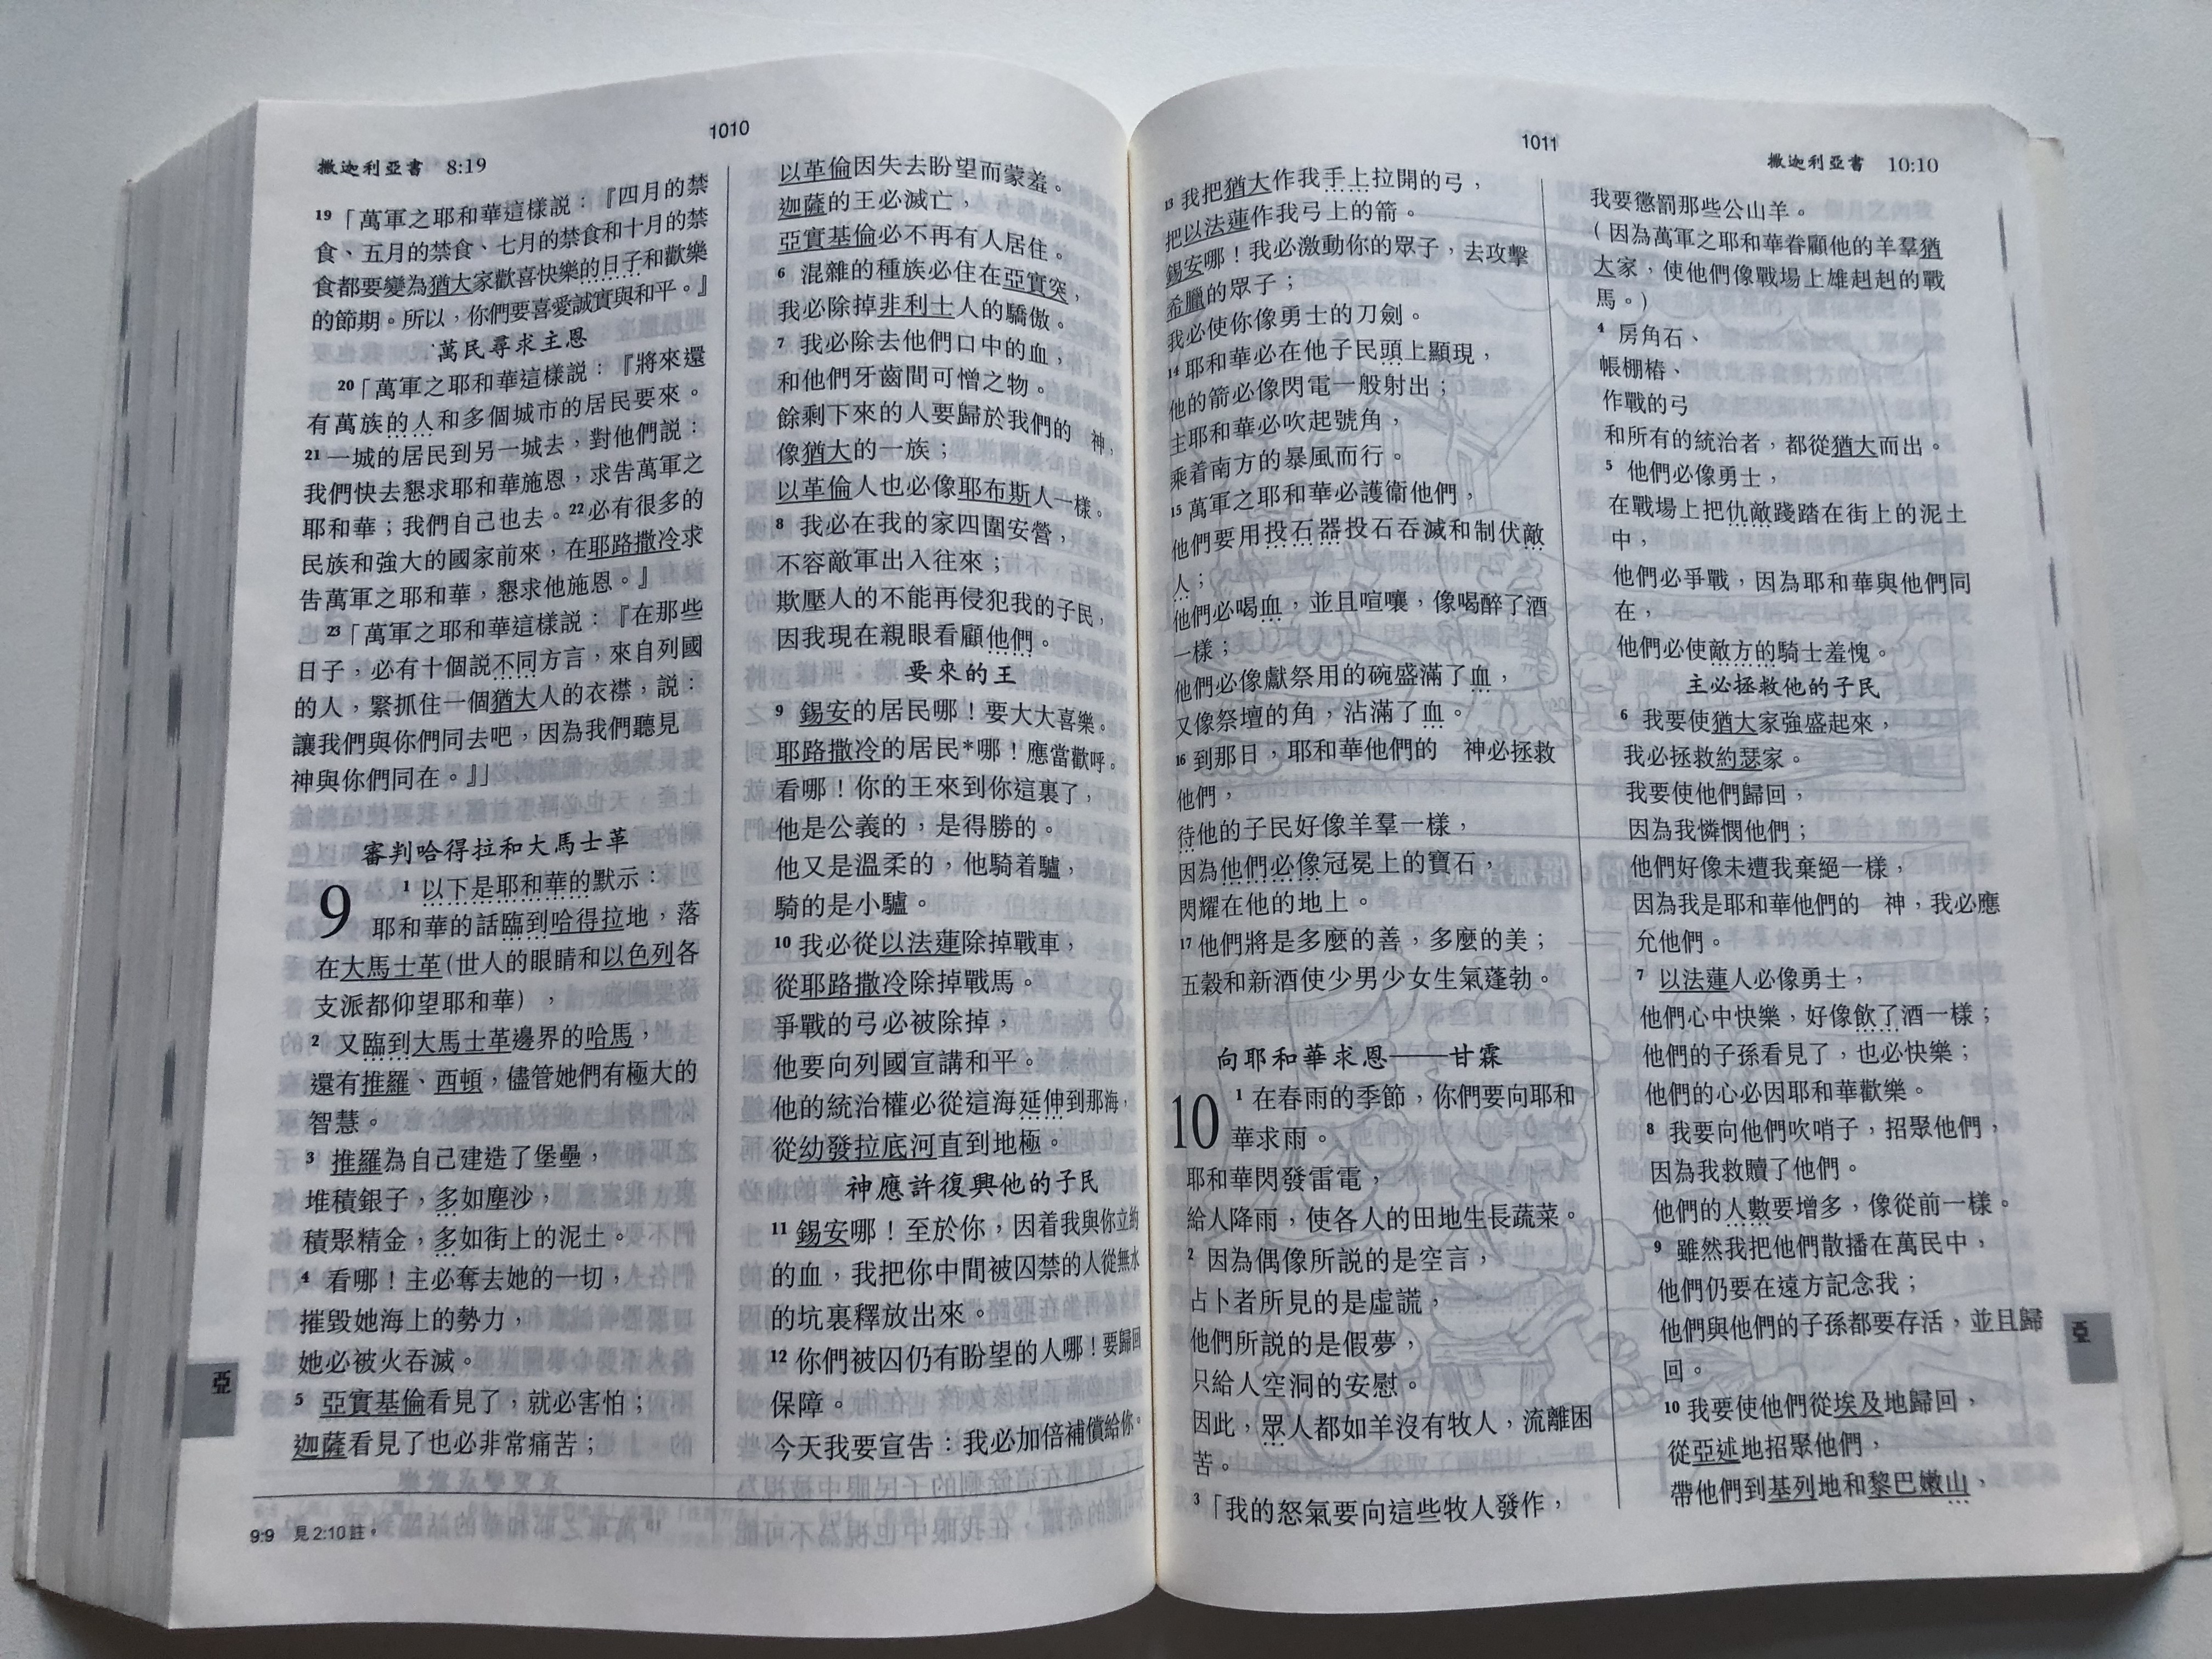 1010
撒迦利亞書 8:19
19「萬軍之耶和華這樣説：『四月的禁
食、五月的禁食、七月的禁食和十月的禁
食都要變為猶大家歡喜快樂的日子和歡樂
的節期。所以，你們要喜愛誠實與和平。』
萬民尋求主恩
20「萬軍之耶和華這樣説：『將來還
有萬族的人和多個城市的居民要來。
21一城的居民到另一城去，對他們説：
我們快去懇求耶和華施恩，求告萬軍之
耶和華；我們自己也去。22必有很多的
民族和強大的國家前來，在耶路撒冷求
告萬軍之耶和華，懇求他施恩。』
23「萬軍之耶和華這樣説：『在那些
日子，必有十個説不同方言，來自列國
的人，緊抓住一個猶大人的衣襟，説：
讓我們與你們同去吧，因為我們聽見
神與你們同在。』」
審判哈得拉和大馬士革
9 1 以下是耶和華的默示：
耶和華的話臨到哈得拉地，落
在大馬士革(世人的眼睛和以色列各
支派都仰望耶和華)，
2 又臨到大馬士革邊界的哈馬，
還有推羅、西頓，儘管她們有極大的
智慧。
3 推羅為自己建造了堡壘，
堆積銀子，多如塵沙，
積聚精金，多如街上的泥土。
4 看哪！主必奪去她的一切，
摧毀她海上的勢力，
她必被火吞滅。
5 亞實基倫看見了，就必害怕；
迦薩看見了也必非常痛苦；
以革倫因失去盼望而蒙羞。
迦薩的王必滅亡，
亞實基倫必不再有人居住。
6 混雜的種族必住在亞實突，
我必除掉非利士人的驕傲。
7 我必除去他們口中的血，
和他們牙齒間可憎之物。
餘剩下來的人要歸於我們的 神，
像猶大的一族；
以革倫人也必像耶布斯人一樣。
8 我必在我的家四圍安營，
不容敵軍出入往來；
欺壓人的不能再侵犯我的子民，
因我現在親眼看顧他們。
要來的王
9 錫安的居民哪！要大大喜樂。
耶路撒冷的居民*哪！應當歡呼。
看哪！你的王來到你這裏了，
他是公義的，是得勝的。
他又是溫柔的，他騎着驢，
騎的是小驢。
10 我必從以法蓮除掉戰車，
從耶路撒冷除掉戰馬。
爭戰的弓必被除掉，
他要向列國宣講和平。
他的統治權必從這海延伸到那海，
從幼發拉底河直到地極。
神應許復興他的子民
11 錫安哪！至於你，因着我與你立約
的血，我把你中間被囚禁的人從無水
的坑裏釋放出來。
12 你們被囚仍有盼望的人哪！要歸回
保障。
今天我要宣告：我必加倍補償給你。
9:9 見2:10註。
亞
1011
撒迦利亞書 10:10
13 我把猶大作我手上拉開的弓，
把以法蓮作我弓上的箭。
錫安哪！我必激動你的眾子，去攻擊
希臘的眾子；
我必使你像勇士的刀劍。
14 耶和華必在他子民頭上顯現，
他的箭必像閃電一般射出；
主耶和華必吹起號角，
乘着南方的暴風而行。
15 萬軍之耶和華必護衞他們，
他們要用投石器投石吞滅和制伏敵
人；
他們必喝血，並且喧嚷，像喝醉了酒
一樣；
他們必像獻祭用的碗盛滿了血，
又像祭壇的角，沾滿了血。
16 到那日，耶和華他們的 神必拯救
他們，
待他的子民好像羊羣一樣，
因為他們必像冠冕上的寶石，
閃耀在他的地上。
17 他們將是多麼的善，多麼的美；
五穀和新酒使少男少女生氣蓬勃。
向耶和華求恩——甘霖
10 1 在春雨的季節，你們要向耶和
華求雨。
耶和華閃發雷電，
給人降雨，使各人的田地生長蔬菜。
2 因為偶像所説的是空言，
占卜者所見的是虛謊，
他們所説的是假夢，
只給人空洞的安慰。
因此，眾人都如羊沒有牧人，流離困
苦。
3「我的怒氣要向這些牧人發作，
我要懲罰那些公山羊。
(因為萬軍之耶和華眷顧他的羊羣猶
大家，使他們像戰場上雄赳赳的戰
馬。)
4 房角石、
帳棚樁、
作戰的弓
和所有的統治者，都從猶大而出。
5 他們必像勇士，
在戰場上把仇敵踐踏在街上的泥土
中，
他們必爭戰，因為耶和華與他們同
在，
他們必使敵方的騎士羞愧。
主必拯救他的子民
6 我要使猶大家強盛起來，
我必拯救約瑟家。
我要使他們歸回，
因為我憐憫他們；
他們好像未遭我棄絕一樣，
因為我是耶和華他們的 神，我必應
允他們。
7 以法蓮人必像勇士，
他們心中快樂，好像飲了酒一樣；
他們的子孫看見了，也必快樂；
他們的心必因耶和華歡樂。
8 我要向他們吹哨子，招聚他們，
因為我救贖了他們。
他們的人數要增多，像從前一樣。
9 雖然我把他們散播在萬民中，
他們仍要在遠方記念我；
他們與他們的子孫都要存活，並且歸
回。
10 我要使他們從埃及地歸回，
從亞述地招聚他們，
帶他們到基列地和黎巴嫩山，
亞